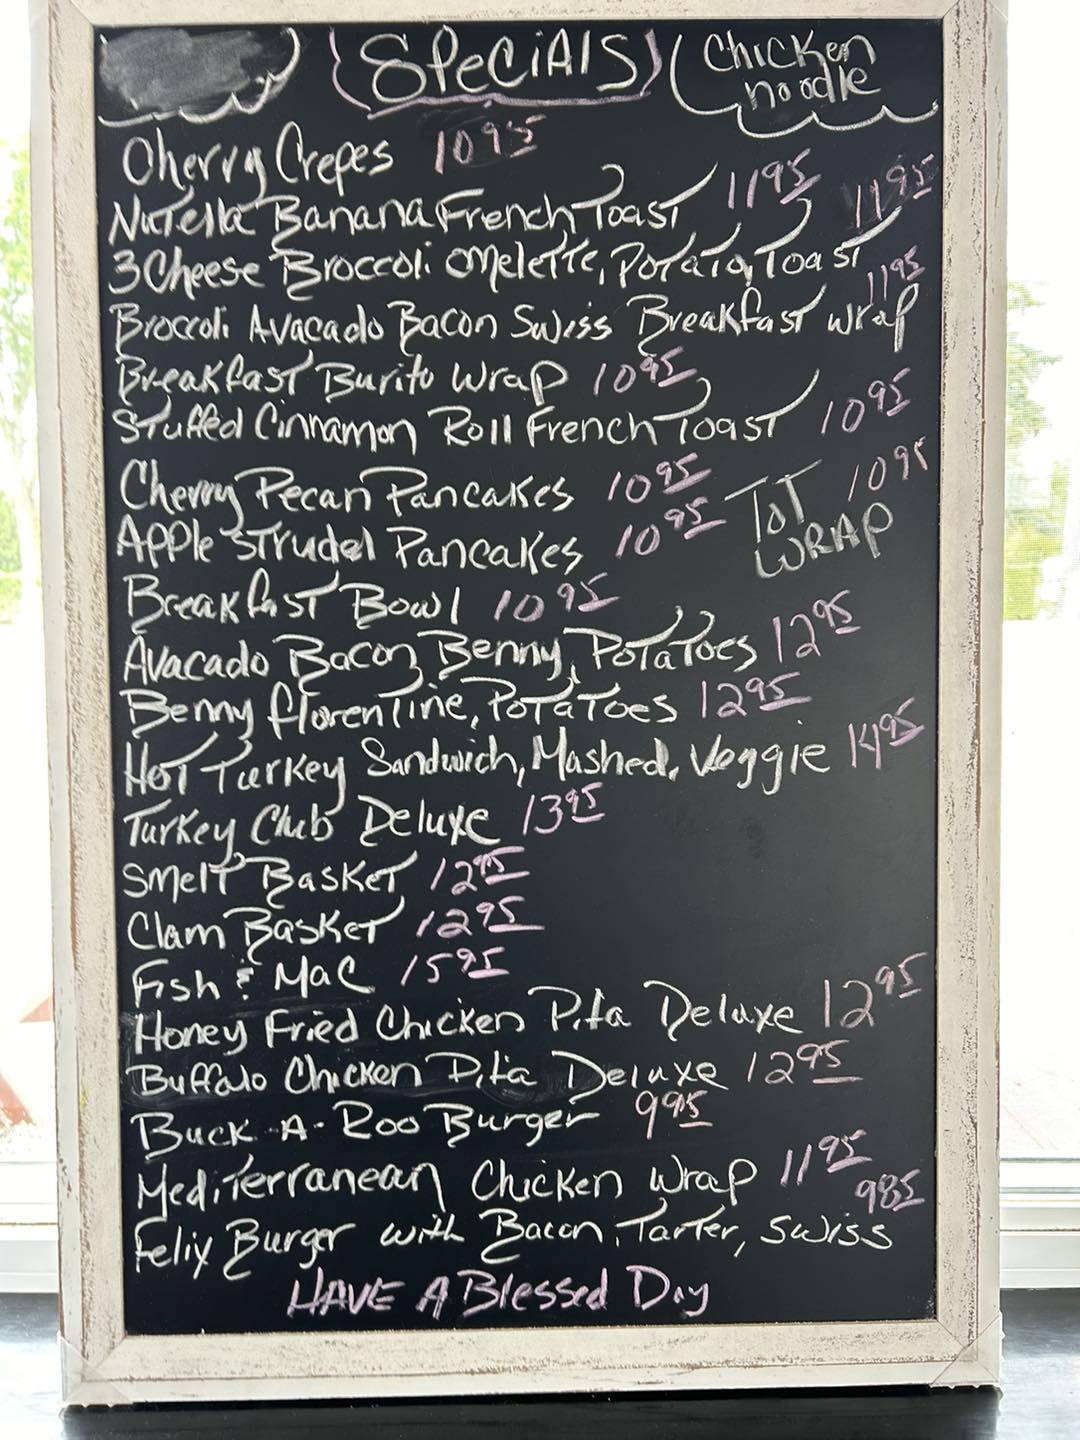 Specials
Chicken
noodle
Cherry Crepes 10 95
Nutella Banana French Toast 11 95
3 Cheese Broccoli omelette, Potato, Toast 11 95
Broccoli Avacado Bacon Swiss Breakfast wrap 11 95
Breakfast Burito Wrap 10 95
Stuffed Cinnamon Roll French Toast 10 95
Cherry Pecan Pancakes 10 95
Apple Strudel Pancakes 10 95
TOT 10 95
WRAP
Breakfast Bowl 10 95
Avacado Bacon Benny, Potatoes 12 95
Benny florentine, Potatoes 12 95
Hot Turkey Sandwich, Mashed, Veggie 14 95
Turkey Club Deluxe 13 95
Smelt Basket 12 95
Clam Basket 12 95
Fish & Mac 15 95
Honey Fried Chicken Pita Deluxe 12 95
Buffalo Chicken Pita Deluxe 12 95
Buck-A-Roo Burger 9 95
Mediterranean Chicken Wrap 11 95
Felix Burger with Bacon, Tarter, Swiss 9 85
HAVE A Blessed Day